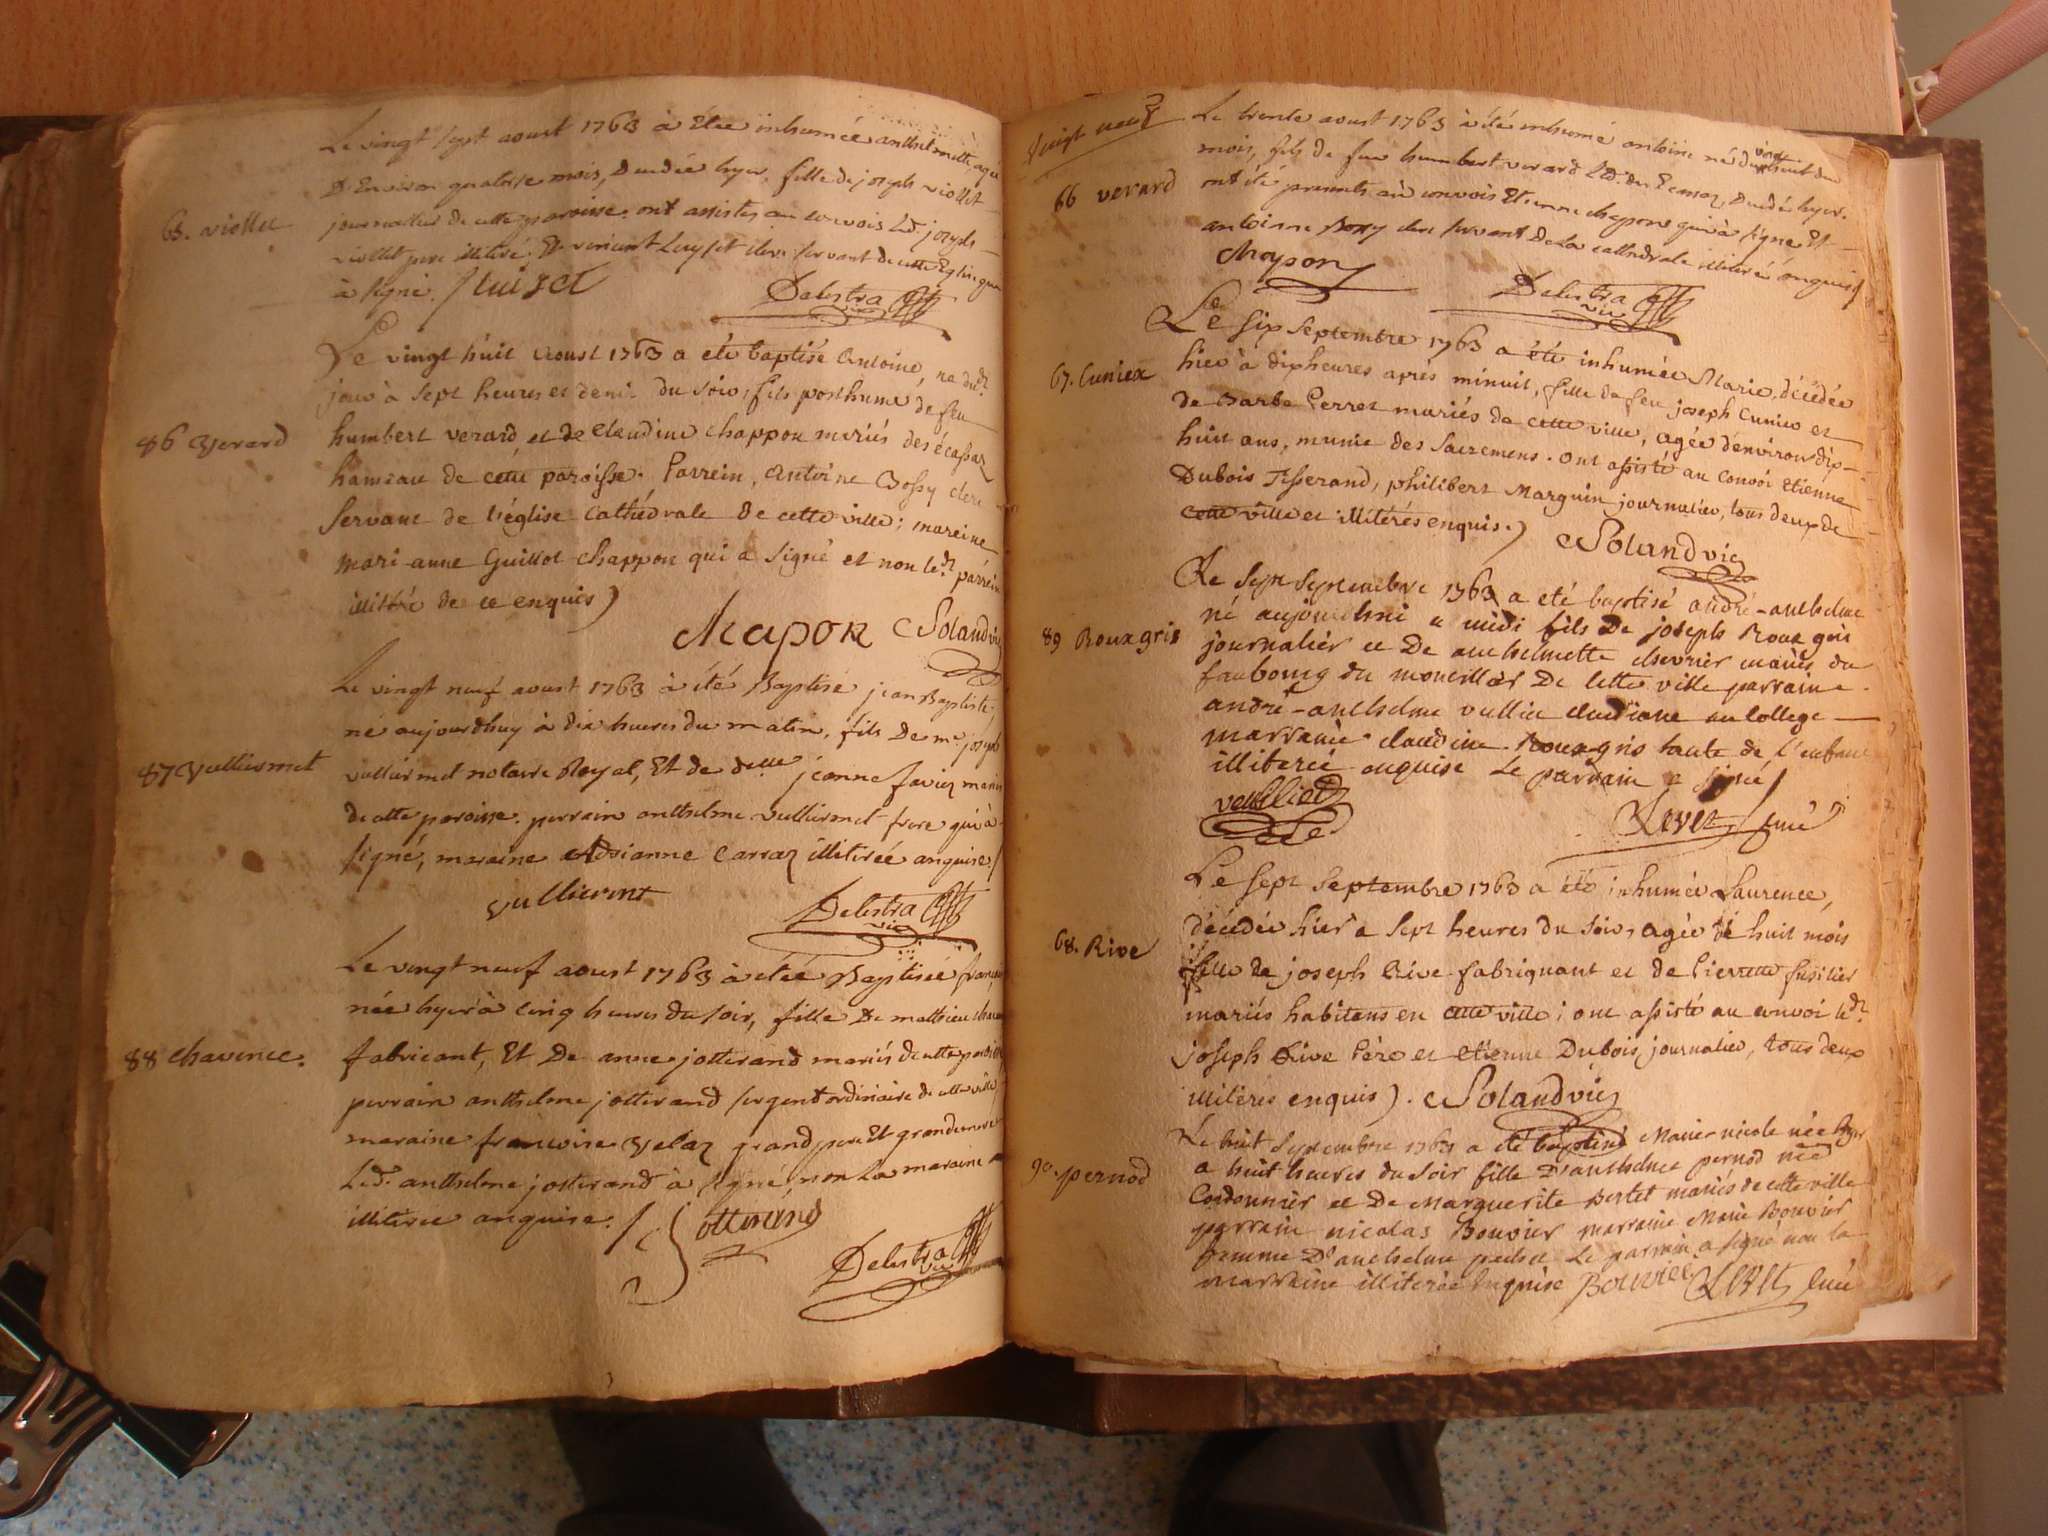 Le vingt sept aoust 1763 à étée inhumée anthelmette, agée
D'Environ quatorse mois, Decedée hyer, fille de joseph viollet
65. viollet
journalier de cette paroisse. ont assistés au convois Led. joseph
viollet pere illiteré, Et vincent Luyset clerc servant de cette Eglise qui
à signé. / luiset
Delestra vic
Le vingt huit Aoust 1763 a été baptisé Antoine, né dud.
jour à sept heures et demi du soir, fils posthume de feu
86 Verard
humbert verard et de Claudine chappon mariés des écassaz
hameau de cette paroisse. Parrein, Antoine Bossy clerc
servant de l'église Cathédrale de cette ville; mareine
mari-anne Guillot chappon qui a signé et non led. parrein
illitéré de ce enquis)
Chapon Soland vic
Le vingt neuf aoust 1763 à été Baptisé jean Baptiste,
né aujourdhuy à dix heures du matin, fils De me. joseph
87 Vulliermet
vulliermet notaire Royal, Et de delle jeanne favier mariés
de cette paroisse. parrain anthelme vulliermet frere qui à
signé, maraine Adrianne Carraz illiterée anquise /
vulliermet
Delestra vic
Le vingt neuf aoust 1763 à étée Baptisée
née hyer à cinq heures du soir, fille De mathieu
88 Chavence.
fabricant, Et De anne jotterand mariés de cette paroisse
parrain anthelme jotterand sergent ordinaire de cette ville
maraine francoise Velaz grand pere Et grandmere
Led. anthelme jotterand à signé, non La maraine
illiteree anquise. /
Jotterand
Delestra vic
Vingt neuf
Le trente aoust 1763 à été inhumé antoine né du vingt huit du
mois, fils de feu humbert verard Decedé hyer.
66 verard
ont été presents au convois Etienne chapon qui à signé Et
antoine Bossy clerc servant De La cathedrale illiteré enquis /
Chapon
Delestra vic
Le six Septembre 1763 a été inhumée Marie, décédée
67. Cunier
hier à dix heures après minuit, fille de feu joseph Cunier et
de Barbe Perret mariés de cette ville, agée d'environ dix-
huit ans, munie des sacremens. Ont assisté au convoi Etienne
Dubois Tisserand, philibert Marguin journalier, tous deux de
cette ville et illitérés enquis.)
Soland vic
Le sept septembre 1763 a eté baptisé andré-anthelme
89 Rouxgris
né aujourdhui a midi fils De joseph Roux gris
journalier et De anthelmette chevrier mariés du
faubourg du De cette ville parrain
andré-anthelme vullie au College
marraine claudine Rouxgris tante de l'enfant
illiterée enquise Le parrain a signé /
veullied
Revet curé
Le sept septembre 1763 a été inhumée Laurence,
68. Rive
décédée hier a sept heures du soir, agée de huit mois
fille de joseph Rive fabriquant et de Pierrette fusilier
mariés habitans en cette ville; ont assisté au convoi led.
joseph Rive Père et etienne Dubois, journalier, tous deux
illitérés enquis). Soland vic
Le huit Septembre 1763 a eté baptisé Marie nicole née hyer
90. pernod
a huit heures du soir fille D'anthelme pernod
Cordonnier et De marguerite Bertet mariés de cette ville
parrain nicolas Bouvier marraine Marie Bouvier
femme D'anthelme Le parrain a signé non la
marraine illiterée Enquise Bouvier Revet curé